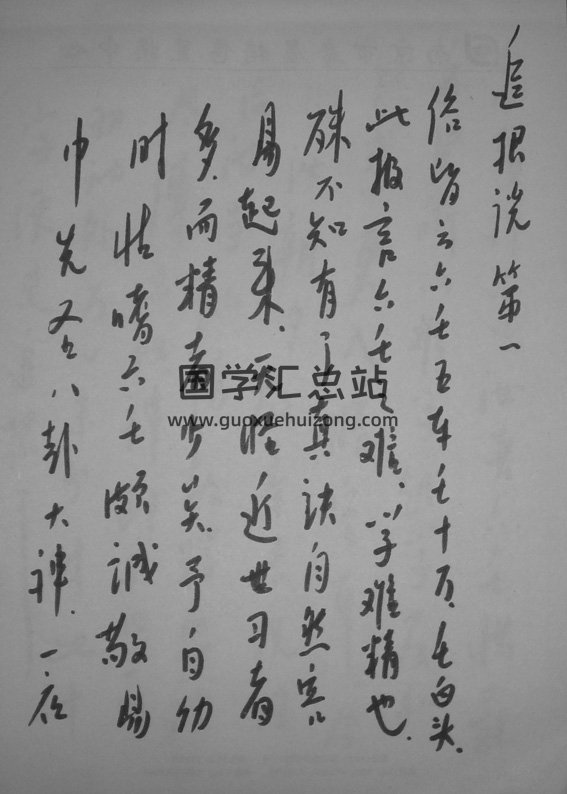 追根说第一
俗皆云六壬五车壬十万.壬白头.
此极言六壬之难、学难精也.
殊不知有了真诀自然容
易起来.无怪近世习者
多.而精者少矣.予自幼
时性嗜六壬颇诚敬
中先八卦大神.一夜
国学汇总站
www.guoxuehuizong.com